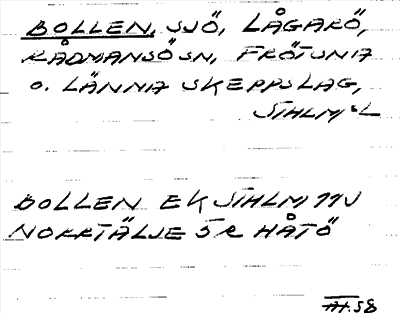 BOLLEN, SJÖ, LÅGARÖ,
RÅDMANSÖ SN, FRÖTUNA
O. LÄNNA SKEPPSLAG,
STHLM:L
BOLLEN EK STHLM 11J
NORRTÄLJE 5R HÅTÖ
AH.58